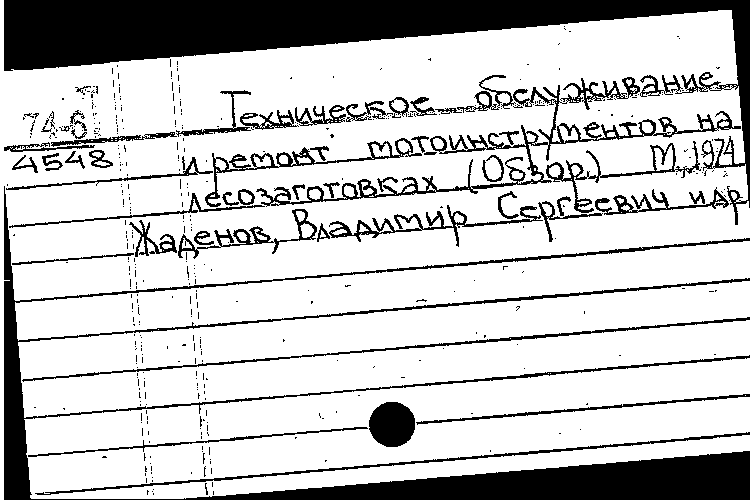 74-6
4548
Техническое обслуживание
и ремонт мотоинструментов на
лесозаготовках (Обзор.) М. 1974
Жаденов, Владимир Сергеевич и др